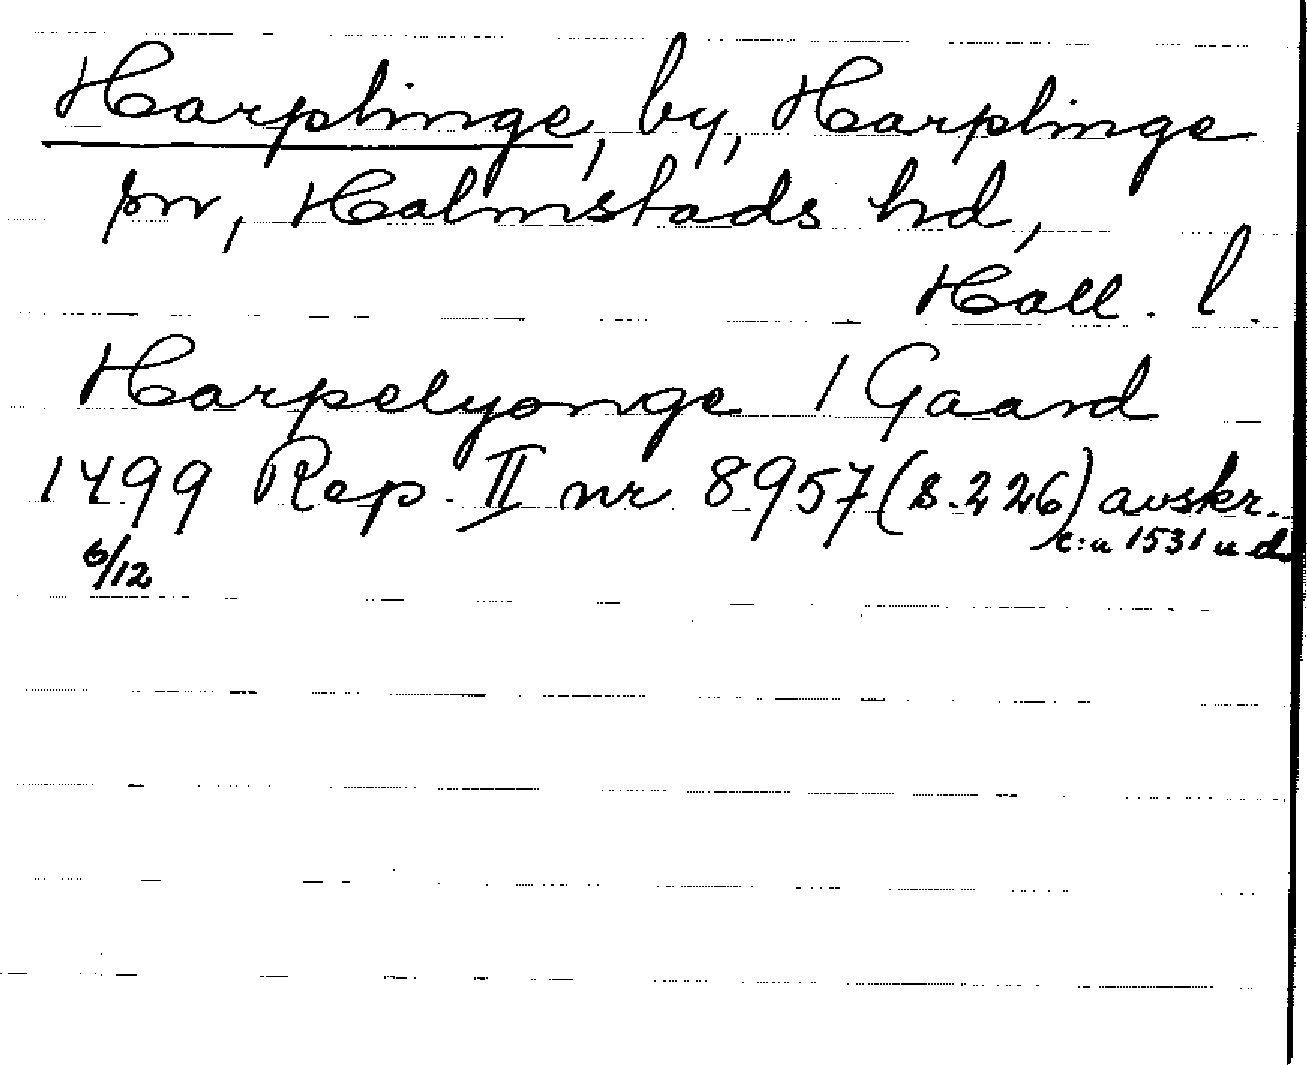 Harplinge, by, Harplinge
sn, Halmstads hd,
Hall. l.
Harpelyonge 1 Gaard
1499 Rep. II nr 8957 (s. 226) avskr.
6/12 c:a 1531 u d